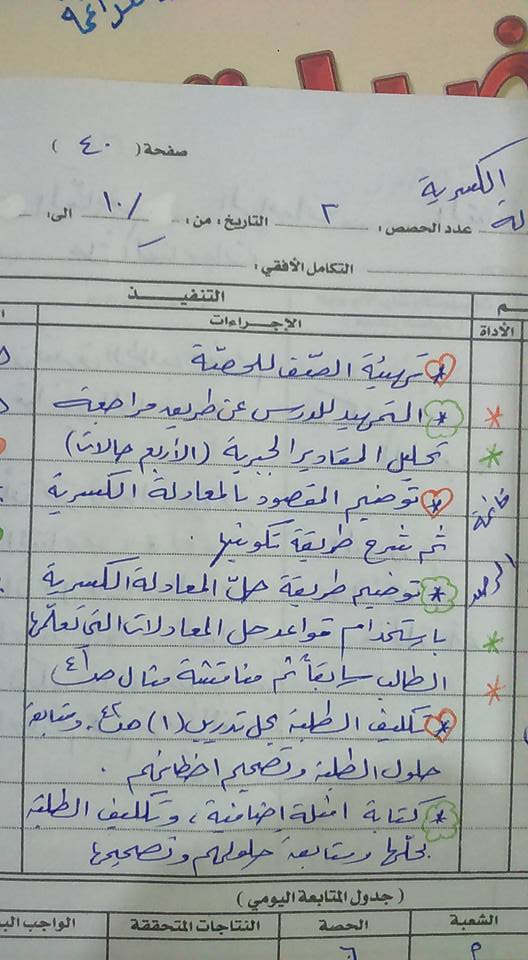 صفحة ( ٤٠ )
الكسرية
عدد الحصص: ٢ التاريخ: من: / ١٠ الى:
التكامل الأفقي:
التنفيذ
الأداة الإجراءات
* تهيئة الصف للحصة
* التمهيد للدرس عن طريق مراجعة
تحليل المقادير الجبرية (الأربع حالات)
* توضيح المقصود بالمعادلة الكسرية
ثم شرح طريقة تكوينها .
* توضيح طريقة حلّ المعادلة الكسرية
باستخدام قواعد حل المعادلات التي تعلّمها
الطالب سابقاً ثم مناقشة مثال ص٤١
* تكليف الطلبة بحل تدريب (١) ص٤٢ ومتابعة
حلول الطلبة وتصحيح اخطائهم .
* كتابة امثلة إضافية ، وتكليف الطلبة
بحلّها ومتابعة حلولهم وتصحيحها
(جدول المتابعة اليومي)
الشعبة الحصة النتاجات المتحققة الواجب
٦